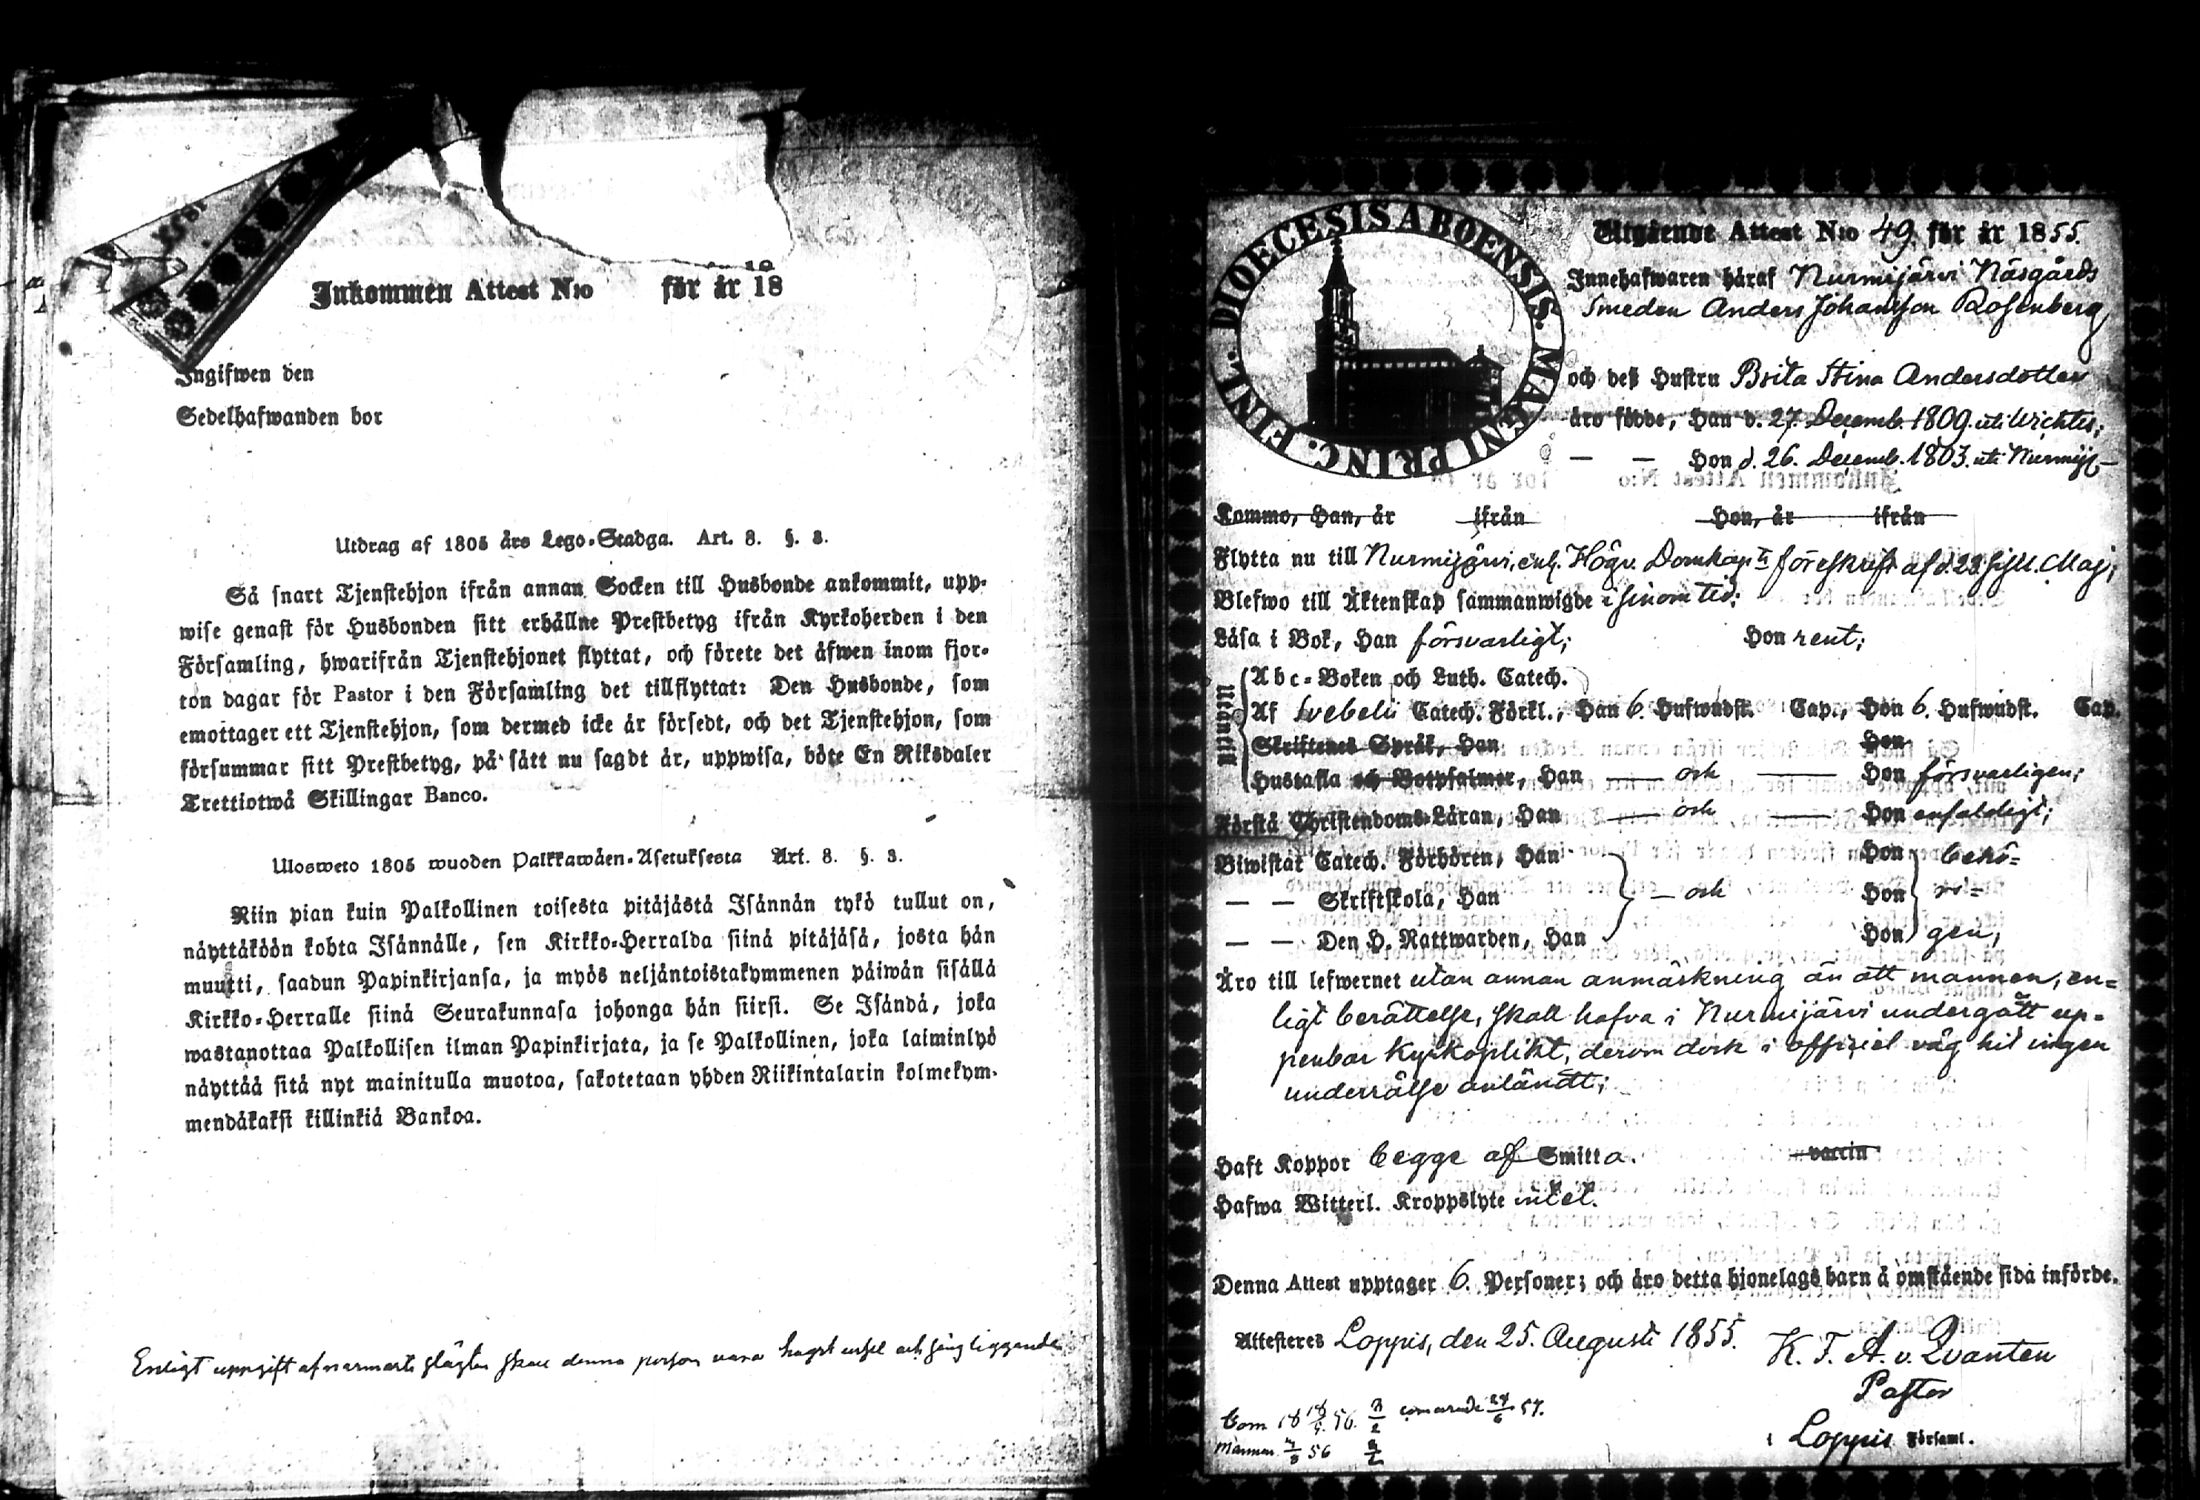 Inkommen Attest N:o för år 18
Ingifwen den
Sedelhafwanden bor
Utdrag af 1805 års Lego-Stadga. Art. 8. §. 3.
Så snart Tjenstehjon ifrån annan Socken till Husbonde ankommit, upp-
wise genast för Husbonden sitt erhållne Prestbetyg ifrån Kyrkoherden i den
Församling, hwarifrån Tjenstehjonet flyttat, och förete det äfwen inom fjor-
ton dagar för Pastor i den Församling det tillflyttat: Den Husbonde, som
emottager ett Tjenstehjon, som dermed icke är försedt, och det Tjenstehjon, som
försummar sitt Prestbetyg, på sätt nu sagdt är, uppwisa, böte En Riksdaler
Trettiotwå Skillingar Banco.
Ulosweto 1805 wuoden Palkkawäen-Asetuksesta Art. 8. §. 3.
Niin pian kuin Palkollinen toisesta pitäjästä Isännän tykö tullut on,
näyttäköön kohta Isännälle, sen Kirkko-Herralda siinä pitäjäsä, josta hän
muutti, saadun Papinkirjansa, ja myös neljäntoistakymmenen päiwän sisällä
Kirkko-Herralle siinä Seurakunnasa johonga hän siirsi. Se Isändä, joka
wastanottaa Palkollisen ilman Papinkirjata, ja se Palkollinen, joka laiminlyö
näyttää sitä nyt mainitulla muotoa, sakotetaan yhden Riikintalarin kolmekym-
mendäkaksi killinkiä Bankoa.
Enligt uppgift af närmaste slägten skall denna person vara högst usel och säng liggande
DIOECESIS ABOENSIS. MAGNI PRINC. FINL.
Utgående Attest N:o 49. för år 1855.
Innehafwaren häraf Nurmijärvi Näsgårds
Smeden Anders Johansson Rosenberg
och deß Hustru Brita Stina Andersdotter
äro födde, Han d. 27. Decemb. 1809. uti Wichtis;
— — Hon d. 26. Decemb. 1803. uti Nurmij.—
Kommo, Han, år ifrån Hon, år ifrån
Flytta nu till Nurmijärvi, enl. Högv. Domkap:ts föreskrift af d. 23. sistl. Maj;
Blefwo till Äktenskap sammanwigde i sinom tid;
Läsa i Bok, Han försvarligt; Hon rent;
Utanell
Abc-Boken och Luth. Catech.
Af Svebelii Catech. Förkl., Han 6. Hufwudst. Cap., Hon 6. Hufwudst. Cap.
Skriftenes Språk, Han Hon
Hustafla och Botpsalmer, Han — och — Hon försvarligen;
Förstå Christendoms-Läran, Han — och — Hon enfaldigt;
Biwistat Catech. Förhören, Han Hon behö-
— — Skriftskola, Han — och Hon ri-
— — Den H. Nattwarden, Han Hon gen;
Äro till lefwernet utan annan anmärkning än att mannen, en-
ligt berättelse, skall hafva i Nurmijärvi undergått up-
penbar Kyrkoplikt, derom dock i officiel väg hit ingen
underrättelse anländt;
Haft Koppor begge af Smitta. vaccin
Hafwa Witterl. Kroppslyte intet.
Denna Attest upptager 6. Personer; och äro detta hjonelags barn å omstående sida införde.
Attesteres Loppis, den 25. Augusti 1855.
K. F. A. v. Qvanten
Pastor
i Loppis Församl.